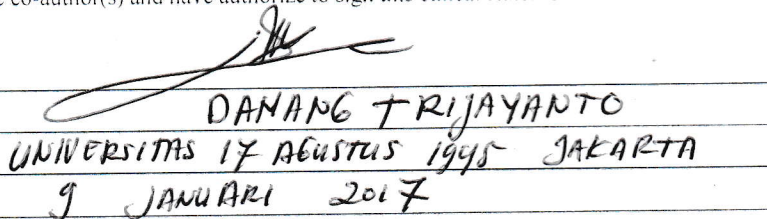 co-author(s) and have authorize to sign this
DANANG TRIJAYANTO
UNIVERSITAS 17 AGUSTUS 1945 JAKARTA
9 JANUARI 2017